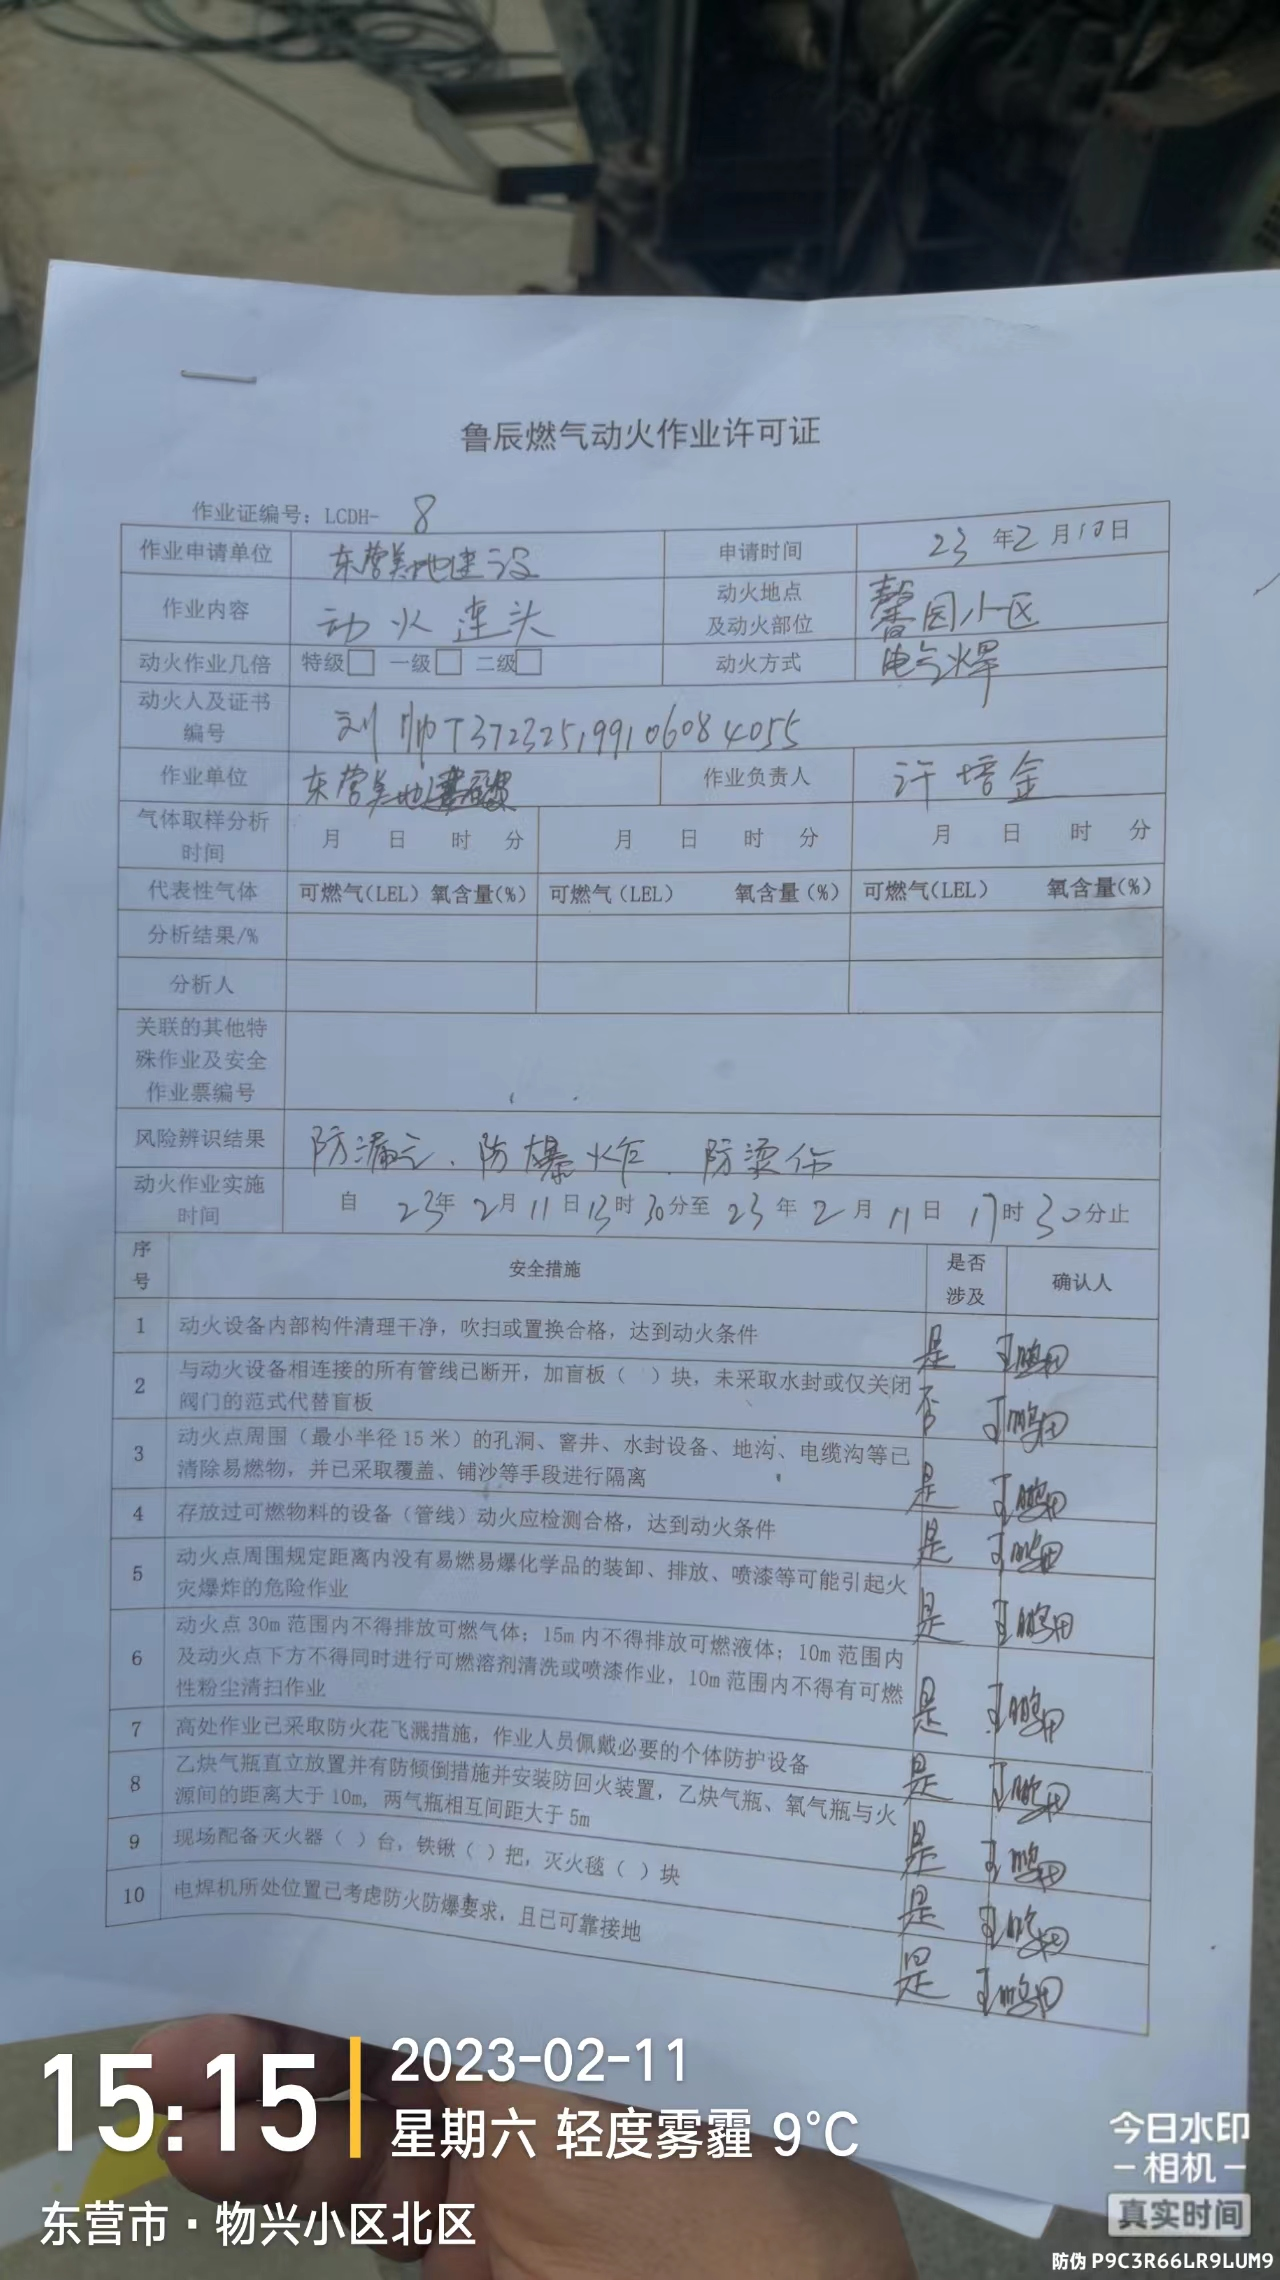 鲁辰燃气动火作业许可证
作业证编号：LCDH- 8
作业申请单位 东营美地建设 申请时间 23年2月10日
作业内容 动火连头 动火地点及动火部位 馨园小区
动火作业几倍 特级□ 一级□ 二级□ 动火方式 电气焊
动火人及证书编号 刘帅T372325199106084055
作业单位 东营美地建设 作业负责人 许培金
气体取样分析时间 月 日 时 分 月 日 时 分 月 日 时 分
代表性气体 可燃气(LEL) 氧含量(%) 可燃气(LEL) 氧含量(%) 可燃气(LEL) 氧含量(%)
分析结果/%
分析人
关联的其他特
殊作业及安全
作业票编号
风险辨识结果 防漏气、防爆炸、防烫伤
动火作业实施时间 自 23年2月11日13时30分至23年2月11日17时30分止
序号 安全措施 是否涉及 确认人
1 动火设备内部构件清理干净，吹扫或置换合格，达到动火条件 是
2 与动火设备相连接的所有管线已断开，加盲板（ ）块，未采取水封或仅关闭
阀门的范式代替盲板 否
3 动火点周围（最小半径15米）的孔洞、窨井、水封设备、地沟、电缆沟等已
清除易燃物，并已采取覆盖、铺沙等手段进行隔离 是
4 存放过可燃物料的设备（管线）动火应检测合格，达到动火条件 是
5 动火点周围规定距离内没有易燃易爆化学品的装卸、排放、喷漆等可能引起火
灾爆炸的危险作业 是
6 动火点30m范围内不得排放可燃气体；15m内不得排放可燃液体；10m范围内
及动火点下方不得同时进行可燃溶剂清洗或喷漆作业，10m范围内不得有可燃
性粉尘清扫作业 是
7 高处作业已采取防火花飞溅措施，作业人员佩戴必要的个体防护设备 是
8 乙炔气瓶直立放置并有防倾倒措施并安装防回火装置，乙炔气瓶、氧气瓶与火
源间的距离大于10m, 两气瓶相互间距大于5m 是
9 现场配备灭火器（ ）台，铁锹（ ）把，灭火毯（ ）块 是
10 电焊机所处位置已考虑防火防爆要求，且已可靠接地 是
15:15
2023-02-11
星期六 轻度雾霾 9°C
东营市·物兴小区北区
今日水印
相机
真实时间
防伪 P9C3R66LR9LUM9